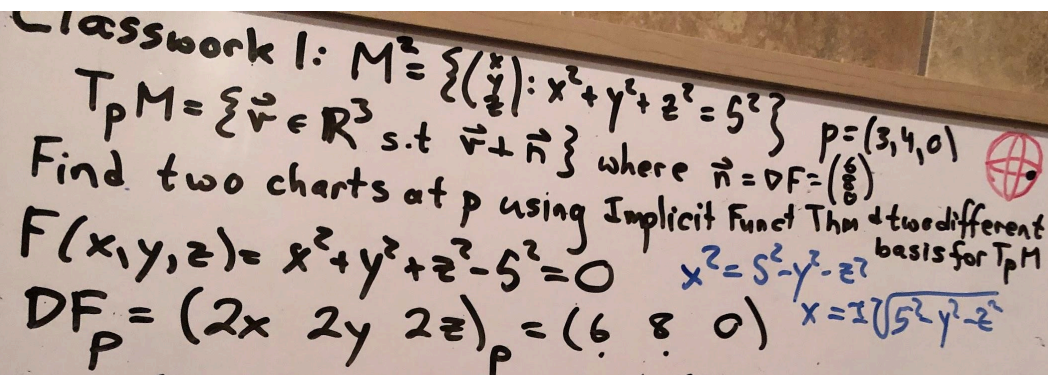 Classwork 1: M² = {(x y z): x² + y² + z² = 5²} p = (3,4,0)
TₚM = {v⃗ ∈ ℝ³ s.t v⃗ ⊥ n⃗} where n⃗ = DF = (6 8 0)
Find two charts at p using Implicit Funct Thm & two different basis for TₚM
F(x,y,z) = x² + y² + z² - 5² = 0
x² = 5² - y² - z²
DFₚ = (2x 2y 2z)ₚ = (6 8 0)
x = ±√5² - y² - z²